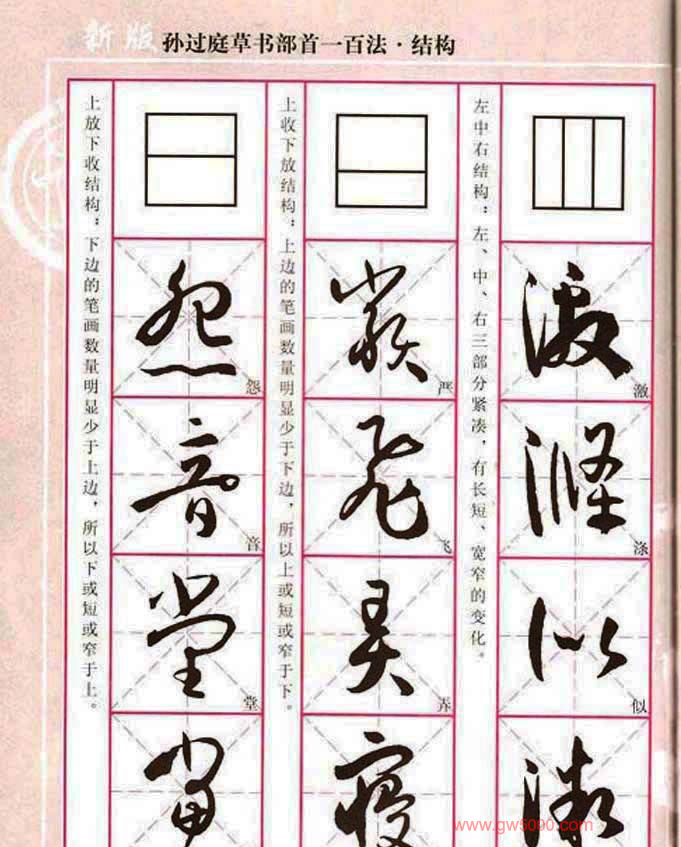 新版 孙过庭草书部首一百法·结构
左中右结构：左、中、右三部分紧凑，有长短、宽窄的变化。
激
涤
似
上收下放结构：上边的笔画数量明显少于下边，所以上或短或窄于下。
严
飞
弄
寝
上放下收结构：下边的笔画数量明显少于上边，所以下或短或窄于上。
怨
音
堂
当
www.gw5000.com